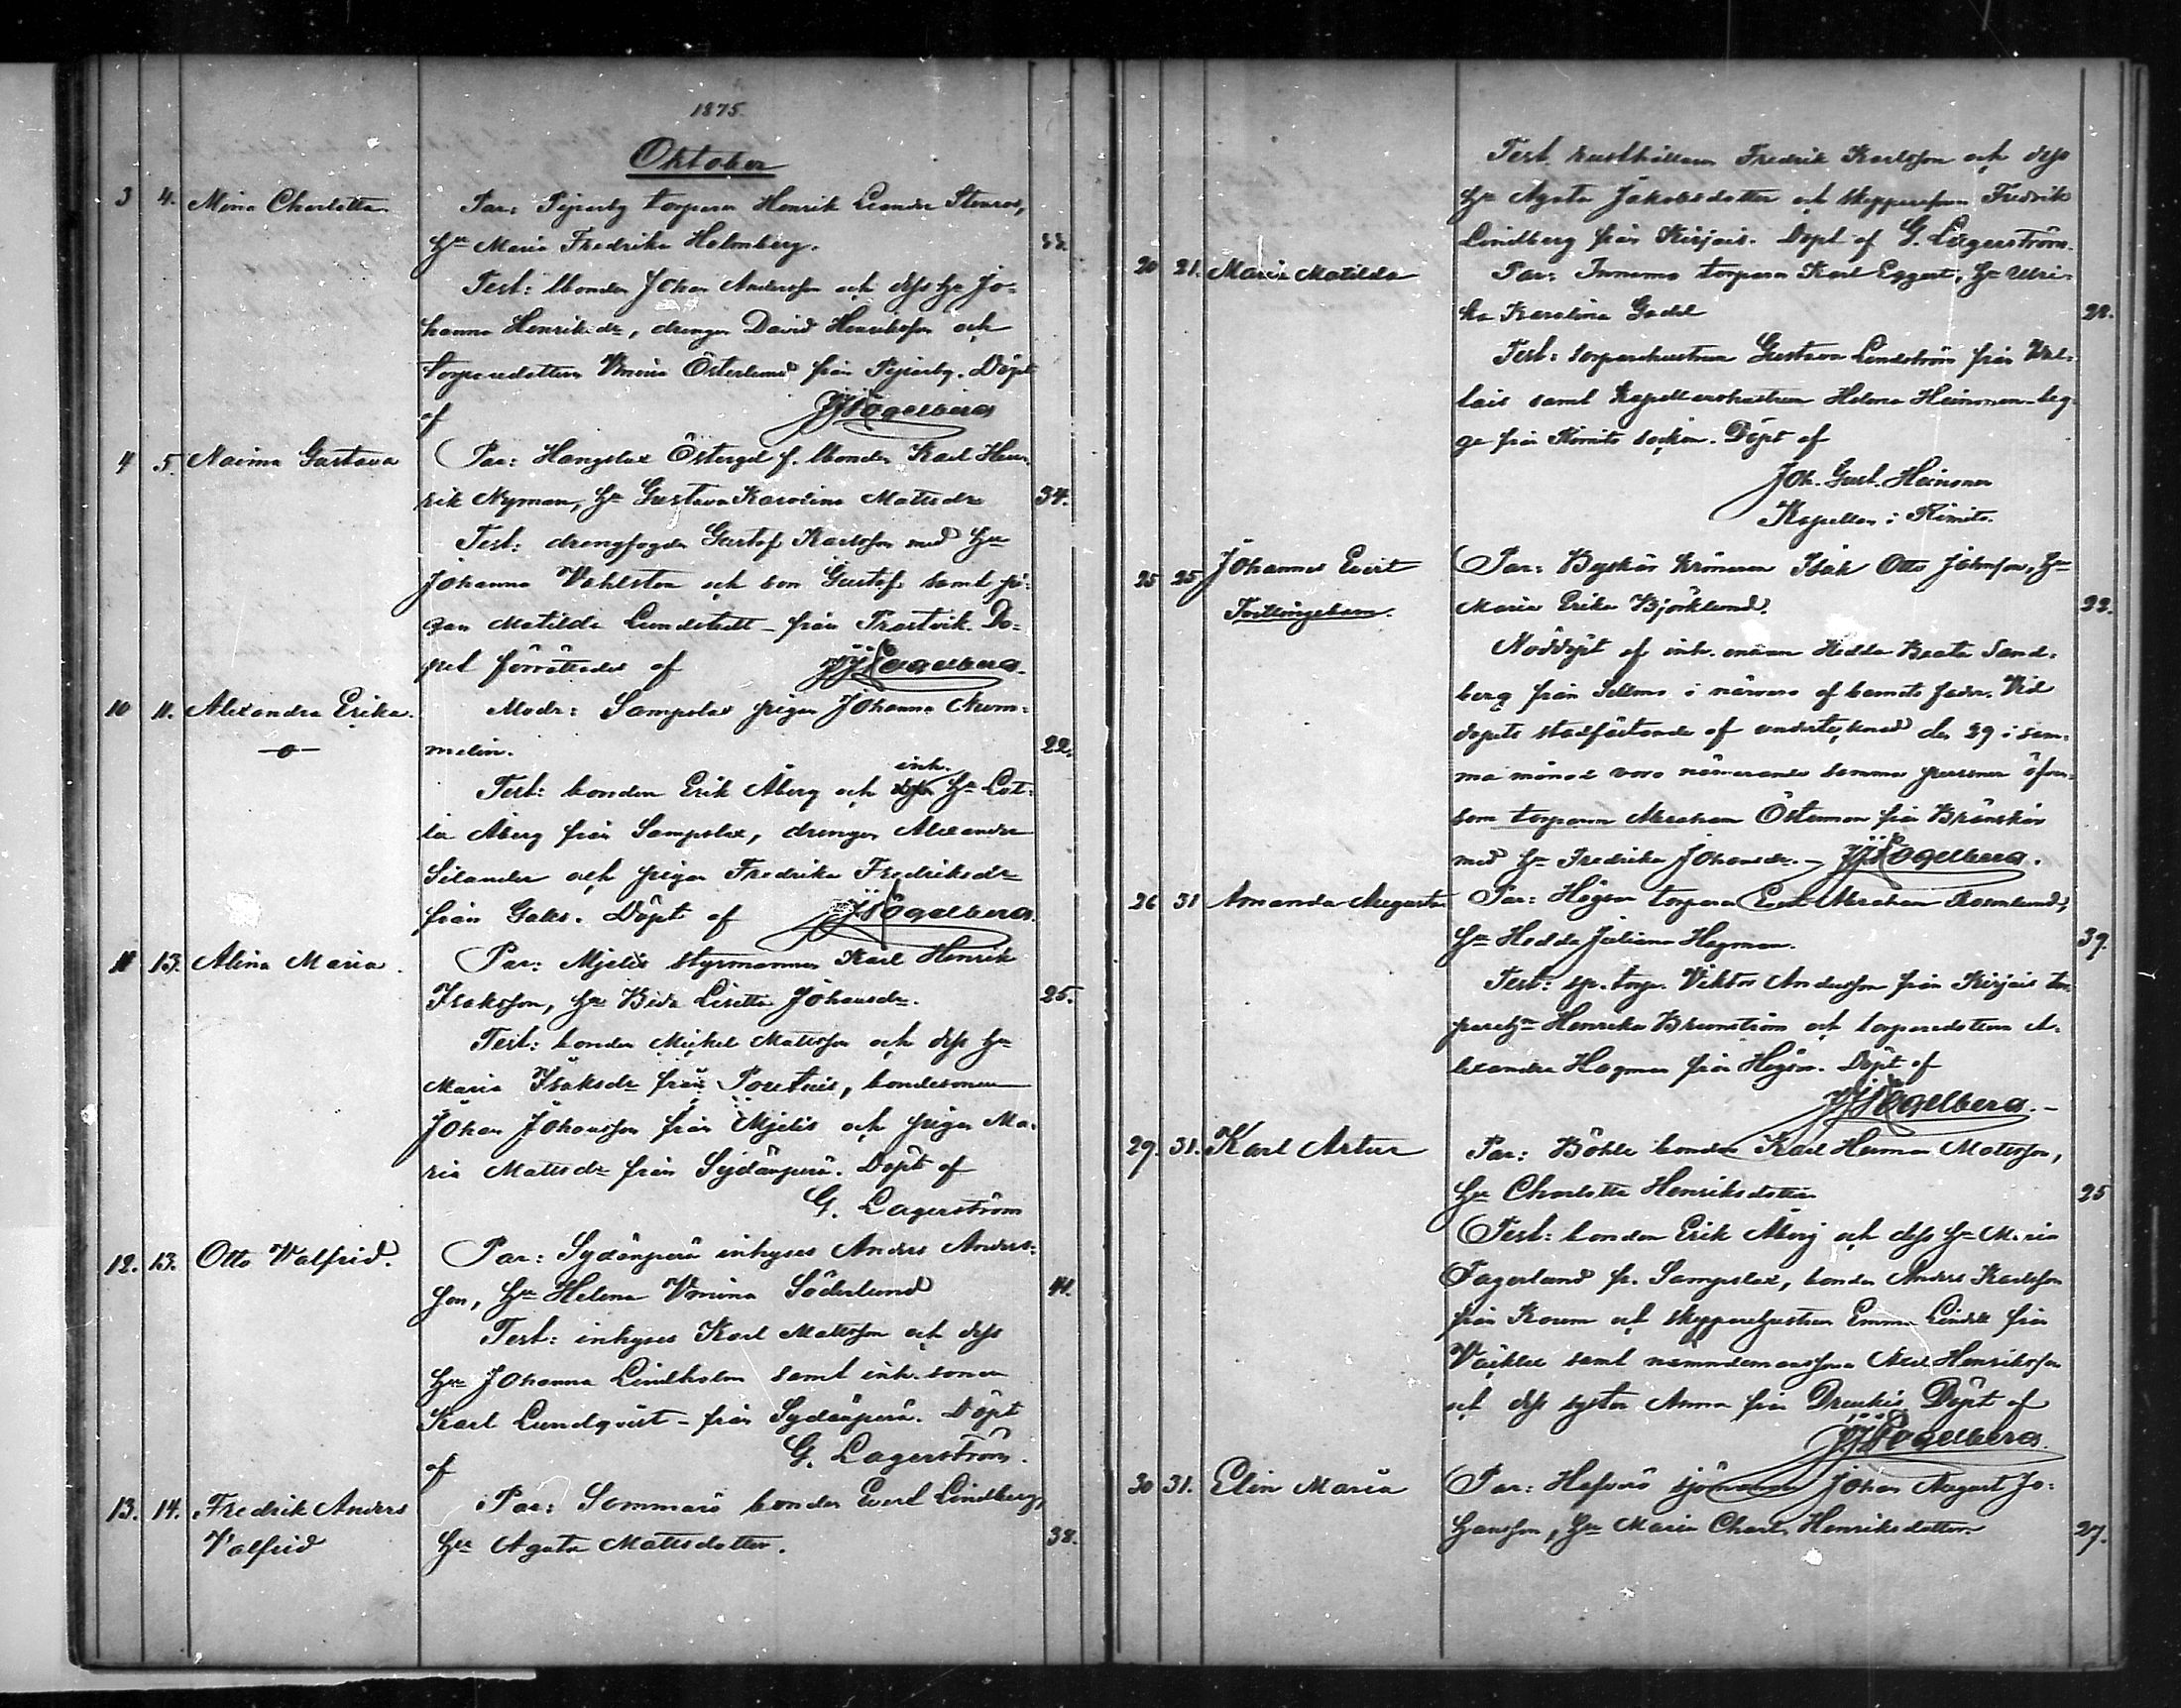 1875.
Oktober
3 4. Mina Charlotta Par: Pejparby torparen Henrik Leander Stenros,
Hu Maria Fredrika Holmberg. 33.
Test: Bonden Johan Andersson och dess Hu Jo=
hanna Henriksdr, drengen David Henriksson och
torparedottern Vmina Österlund från Pejparby. Döpt
af JJFogelberg
4 5. Naima Gustava Par: Hangslax Östergd f. bonden Karl Hen=
rik Nyman, Hu Gustava Karolina Matsdr 34.
Test: drengfogden Gustaf Karlsson med Hu
Johanna Vahlsten och son Gustaf samt pi=
gan Matilda Lundstedt – från Trastvik. Do=
pet förrättades af JJFogelberg.
10 11. Alexandra Erika. Modr: Sampslax pigan Johanna Num=
—o— melin. 22.
Test: bonden Erik Åberg och inh. Hu Lot=
ta Åberg från Sampslax, drengen Alexander
Silander och pigan Fredrika Fredriksdr
från Galts. Döpt af JJFogelberg.
11 13. Alina Maria. Par: Mjelis styrmannen Karl Henrik
Isaksson, Hu Lisette Johansdr. 25.
Test: bonden Mickel Mattsson och dess Hu
Maria Isaksdr från, bondesonen
Johan Johansson från Mjelis och pigan Ma=
ria Mattsdr från Sydänperä. Döpt af
G. Lagerström
12. 13. Otto Valfrid. Par: Sydänperä inhyses Anders Anders=
son, Hu Helena Vmina Söderlund 41.
Test: inhyses Karl Mattsson och dess
Hu Johanna Lindholm samt inh. sonen
Karl Lundqvist – från Sydänperä. Döpt
af G. Lagerström.
13. 14. Fredrik Anders Par: Sommarö bonden Evert Lindberg,
Valfrid Hu Agata Mattsdotter. 38.
Test. rusthållaren Fredrik Karlsson och dess
Hu Agata Jakobsdotter och skepparesonen Fredrik
Lindberg från Kirjais. Döpt af G. Lagerström.
20 21. Maria Matilda Par: Innamo torparen Karl Eggert, Hu Ulri=
ka Karolina Gadd 28.
Test: torparehustrun Gustava Lindström från
samt Kapellanshustrun Helena Heinonen – beg=
ge från Kimito socken. Döpt af
Joh. Gust. Heinonen
Kapellan i Kimito.
25 25 Johannes Evert Par: Byskär kronoman Isak Otto Johnsson, Hu
Tvillingebarn. Maria Erika Björklund. 22.
Nöddöpt af inh. enkan Hedda Beata Sand=
berg från Sellmo i närvaro af barnets fader. Vid
dopets stadfästande af undertecknad den 29 i sam=
ma månad voro närvarande samma personer äfven=
som torparen Abraham Österman från Brännskär
med Hu Fredrika Johansdr. – JJFogelberg.
26 31 Amanda Augusta Par: Högsar torparen Carl Abraham Rosenlund,
Hu Hedda Juliana Hagman. 39.
Test: sp. torp. Viktor Andersson från Kirjais tor=
pareHu Henrika Brunström och torparedottern A=
lexandra Hagman från Högsar. Döpt af
JJFogelberg. –
29. 31. Karl Artur Par: Böhle bonden Karl Herman Mattsson,
Hu Charlotta Henriksdotter 25
Test: bonden Erik Åberg och dess Hu Maria
Fagerlund fr. Sampslax, bonden Anders Karlsson
från Korum och skepparehustrun Emma Lindell från
samt nämndemanssonen Axel Henriksson
och dess syster Anna från Druckis. Döpt af
JJFogelberg.
30 31. Elin Maria Par: Hafverö sjömannen Johan August Jo=
hansson, Hu Maria Charl. Henriksdotter. 27.